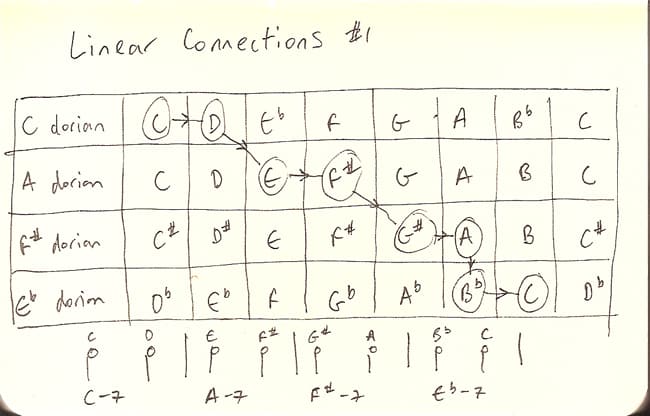 Linear Connections #1
C dorian C D E♭ F G A B♭ C
A dorian C D E F# G A B C
F# dorian C# D# E F# G# A B C#
E♭ dorian D♭ E♭ F G♭ A♭ B♭ C D♭
C D E F# G# A B♭ C
C-7 A-7 F#-7 E♭-7